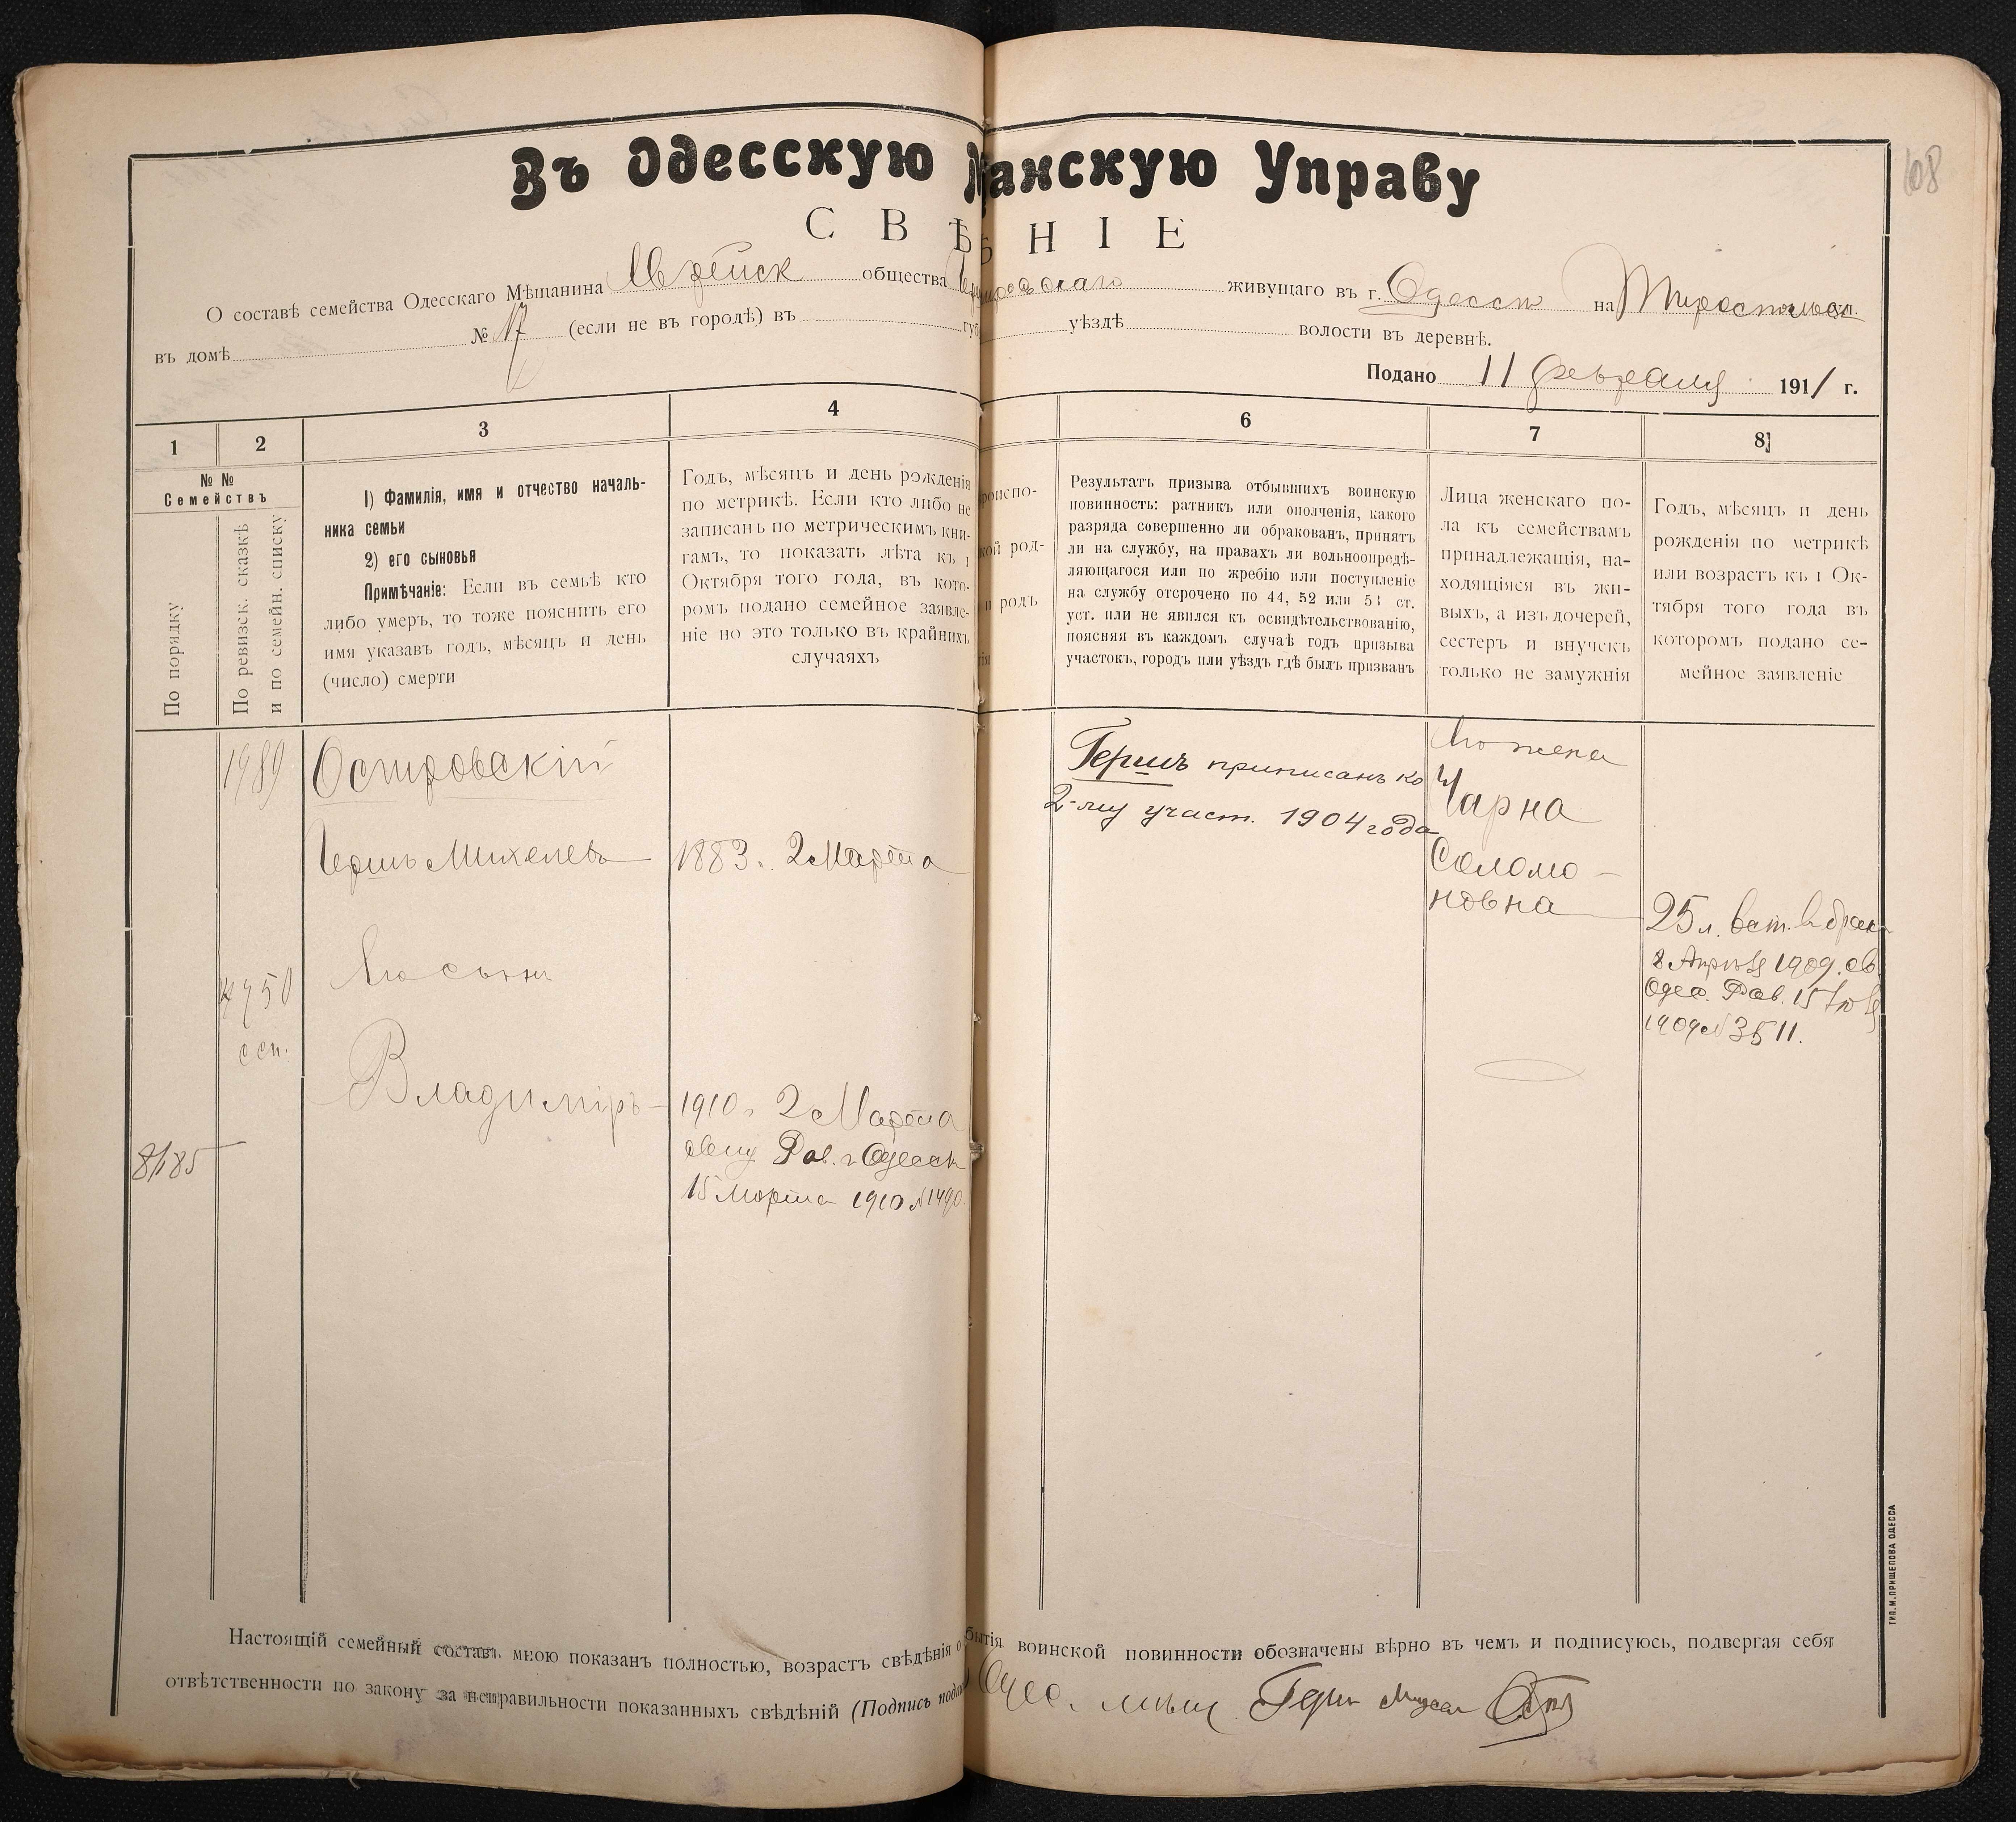 108
Въ Одесскую анскую Управу
СВѢ НІЕ
О составѣ семейства Одесскаго Мѣщанина Еврейск общества живущаго въ г. Одессѣ на Тираспольск ул.
въ домѣ № 17 (если не въ городѣ) въ губ уѣздѣ волости въ деревнѣ.
Подано 11 февраля 1911 г.
1 2 3 4 6 7 8
№ №
Семействъ
По порядку
По ревизск. сказкѣ
и по семейн. списку
1) Фамилія, имя и отчество началь-
ника семьи
2) его сыновья
Примѣчаніе: Если въ семьѣ кто
либо умеръ, то тоже пояснить его
имя указавъ годъ, мѣсяцъ и день
(число) смерти
Годъ, мѣсяцъ и день рожденія
по метрикѣ. Если кто либо не
записанъ по метрическимъ кни-
гамъ, то показать лѣта къ 1
Октября того года, въ кото-
ромъ подано семейное заявле-
ніе но это только въ крайнихъ
случаяхъ
роиспо-
кой род-
и родъ
Результатъ призыва отбывшихъ воинскую
повинность: ратникъ или ополченія, какого
разряда совершенно ли обракованъ, принятъ
ли на службу, на правахъ ли вольноопредѣ-
ляющагося или по жребію или поступленіе
на службу отсрочено по 44, 52 или 53 ст.
уст. или не явился къ освидѣтельствованію,
поясняя въ каждомъ случаѣ годъ призыва
участокъ, городъ или уѣздъ гдѣ былъ призванъ
Лица женскаго по-
ла къ семействамъ
принадлежащія, на-
ходящіяся въ жи-
выхъ, а изъ дочерей,
сестеръ и внучекъ
только не замужнія
Годъ, мѣсяцъ и день
рожденія по метрикѣ
или возрастъ къ 1 Ок-
тября того года въ
котором подано се-
мейное заявленіе
1989 Островскій
Гершъ Михелевъ 1883 г. 2 Марта
Его сынъ
4750
Владиміръ 1910 г. 2 Марта
Рав. г. Одессы
15 Марта 1910 № 1490.
8185
Гершъ приписанъ ко
2-му участ. 1904 года
Его жена
Чарна
Соломо-
новна
25 л. вст. въ бракъ
8 Апрѣля 1909. св.
Одес. Рав. 15 Іюля
1909 № 3511.
Настоящій семейный составъ мною показанъ полностью, возрастъ свѣдѣнія о бытія воинской повинности обозначены вѣрно въ чемъ и подписуюсь, подвергая себя
отвѣтственности по закону за неправильности показанныхъ свѣдѣній (Подпись Одес. мѣщ. Герш
ТИП. М. ПРИЩЕПОВА ОДЕССА